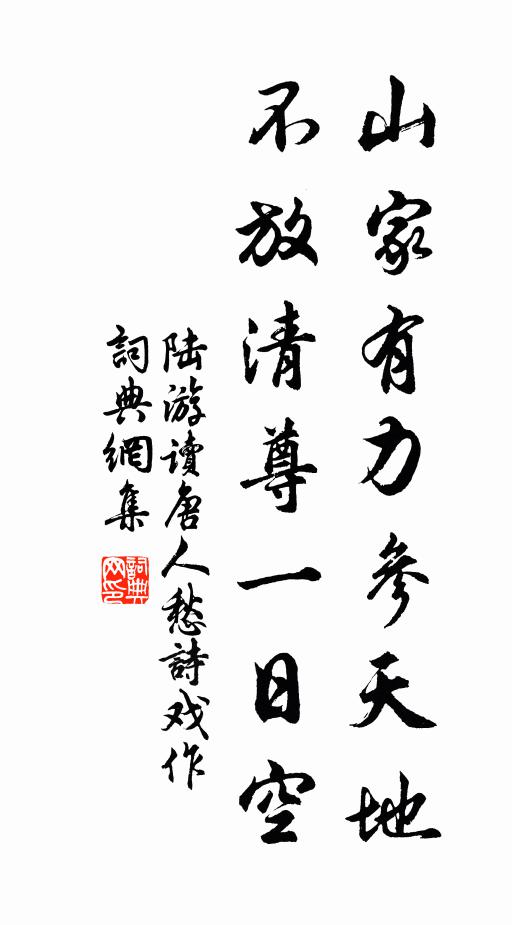 山家有力參天地
不放清尊一日空
陆游读唐人愁詩戏作
詞典網集
詞典
网印